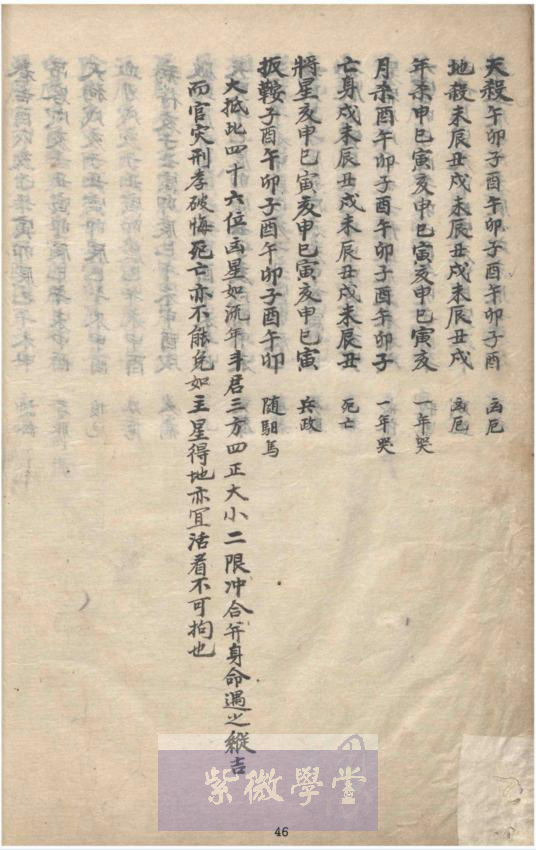 天殺午卯子酉午卯子酉午卯子酉 凶厄
地殺未辰丑戌未辰丑戌未辰丑戌 凶厄
年杀申巳寅亥申巳寅亥申巳寅亥 一年哭
月杀酉午卯子酉午卯子酉午卯子 一年哭
亡身戌未辰丑戌未辰丑戌未辰丑 死亡
將星亥申巳寅亥申巳寅亥申巳寅 兵政
扳鞍子酉午卯子酉午卯子酉午卯 随馹馬
大抵此四十六位凶星如流年斗居三方四正大小二限冲合并身命遇之縱吉
而官灾刑孝破悔死亡亦不能免如主星得地亦宜活看不可拘也
紫微學堂
46